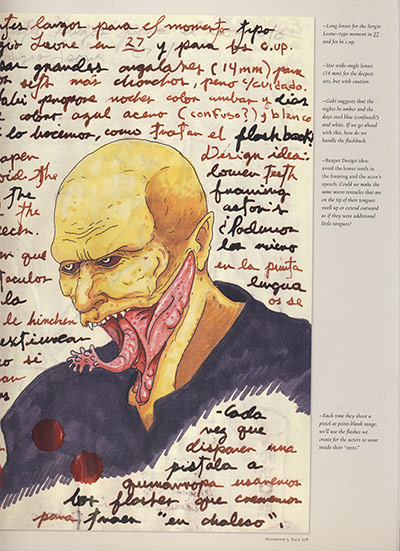 ntes largos para el momento tipo
gio Leone en 27 y para ts c.up.
sar grandes angulares (14mm) para
os sets más chonchos, pero c/cuidado.
Gabi propone noches color ambar y días
color azul acero (confuso?) y blanco
lo hacemos, como tratar el flashback
Reaper Design idea:
avoid the lower teeth
the framing
the astoris
eech. ¿Podemos
en que los micro
taculos en la punta
la lengua
le hinchen os se
extiuvean
o si
an
-Cada
vez que
disparen una
pistola a
quemarropa usaremos
los flashes que crearemos
para traer "en chaleco".
–Long lenses for the Sergio
Leone–type moment in 27
and for ts c.up.
–Use wide-angle lenses
(14 mm) for the deepest
sets, but with caution.
–Gabi suggests that the
nights be amber and the
days steel blue (confused?)
and white. If we go ahead
with this, how do we
handle the flashback
–Reaper Design idea:
avoid the lower teeth in
the framing and the actor's
speech. Could we make the
same micro tentacles that are
on the tip of their tongues
swell up or extend outward
as if they were additional
little tongues?
–Each time they shoot a
pistol at point-blank range,
we'll use the flashes we
create for the actors to wear
inside their "vests."
Notebook 3, Page 27B